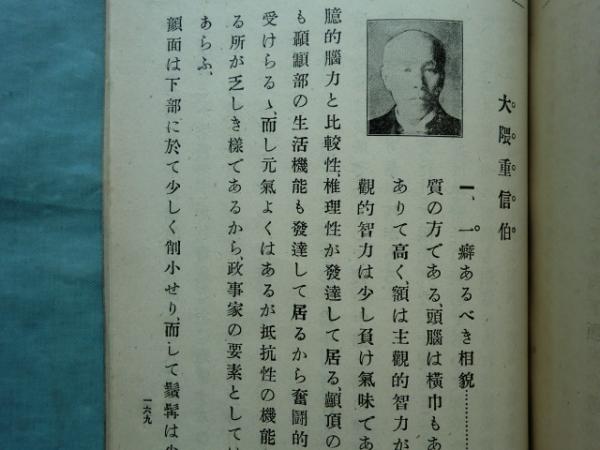 大隈重信伯
一、一癖あるべき相貌…………
質の方である、頭腦は橫巾もあ
ありて高く、額は主觀的智力が
觀的智力は少し負け氣味であ
臆的腦力と比較性、椎理性が發達して居る、顱頂の
も顳顬部の生活機能も發達して居るから奮鬪的
受けらるゝ、而し元氣よくはあるが抵抗性の機能
る所が乏しき樣であるから、政事家の要素として
あらふ、
顏面は下部に於て少しく削小せり、而して鬚髯は少
一六九